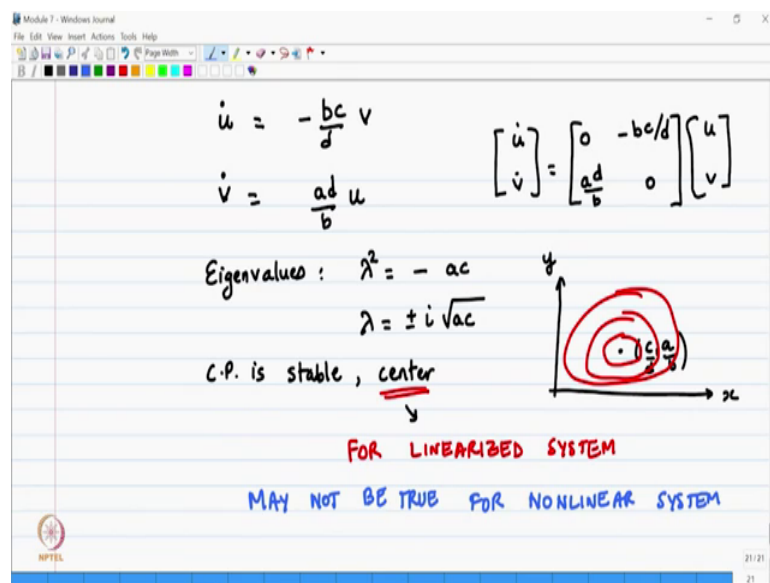 Module 7 - Windows Journal
File Edit View Insert Actions Tools Help
Page Width
B I
u̇ = - bc/d v
v̇ = ad/b u
[u̇ v̇] = [0 -bc/d ad/b 0] [u v]
Eigenvalues : λ² = - ac
λ = ± i √ac
y
(c/d, a/b)
x
C.P. is stable , center
FOR LINEARIZED SYSTEM
MAY NOT BE TRUE FOR NONLINEAR SYSTEM
NPTEL
21/21
21